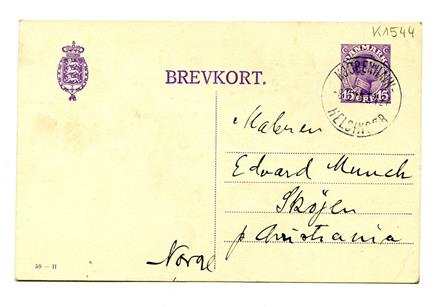 K1544
DANMARK
15 ØRE 15
KJØBENHAVN-
HELSINGØR
BREVKORT.
Maleren
Edvard Munch
Skøjen
p Christiania
Norge
58 - H